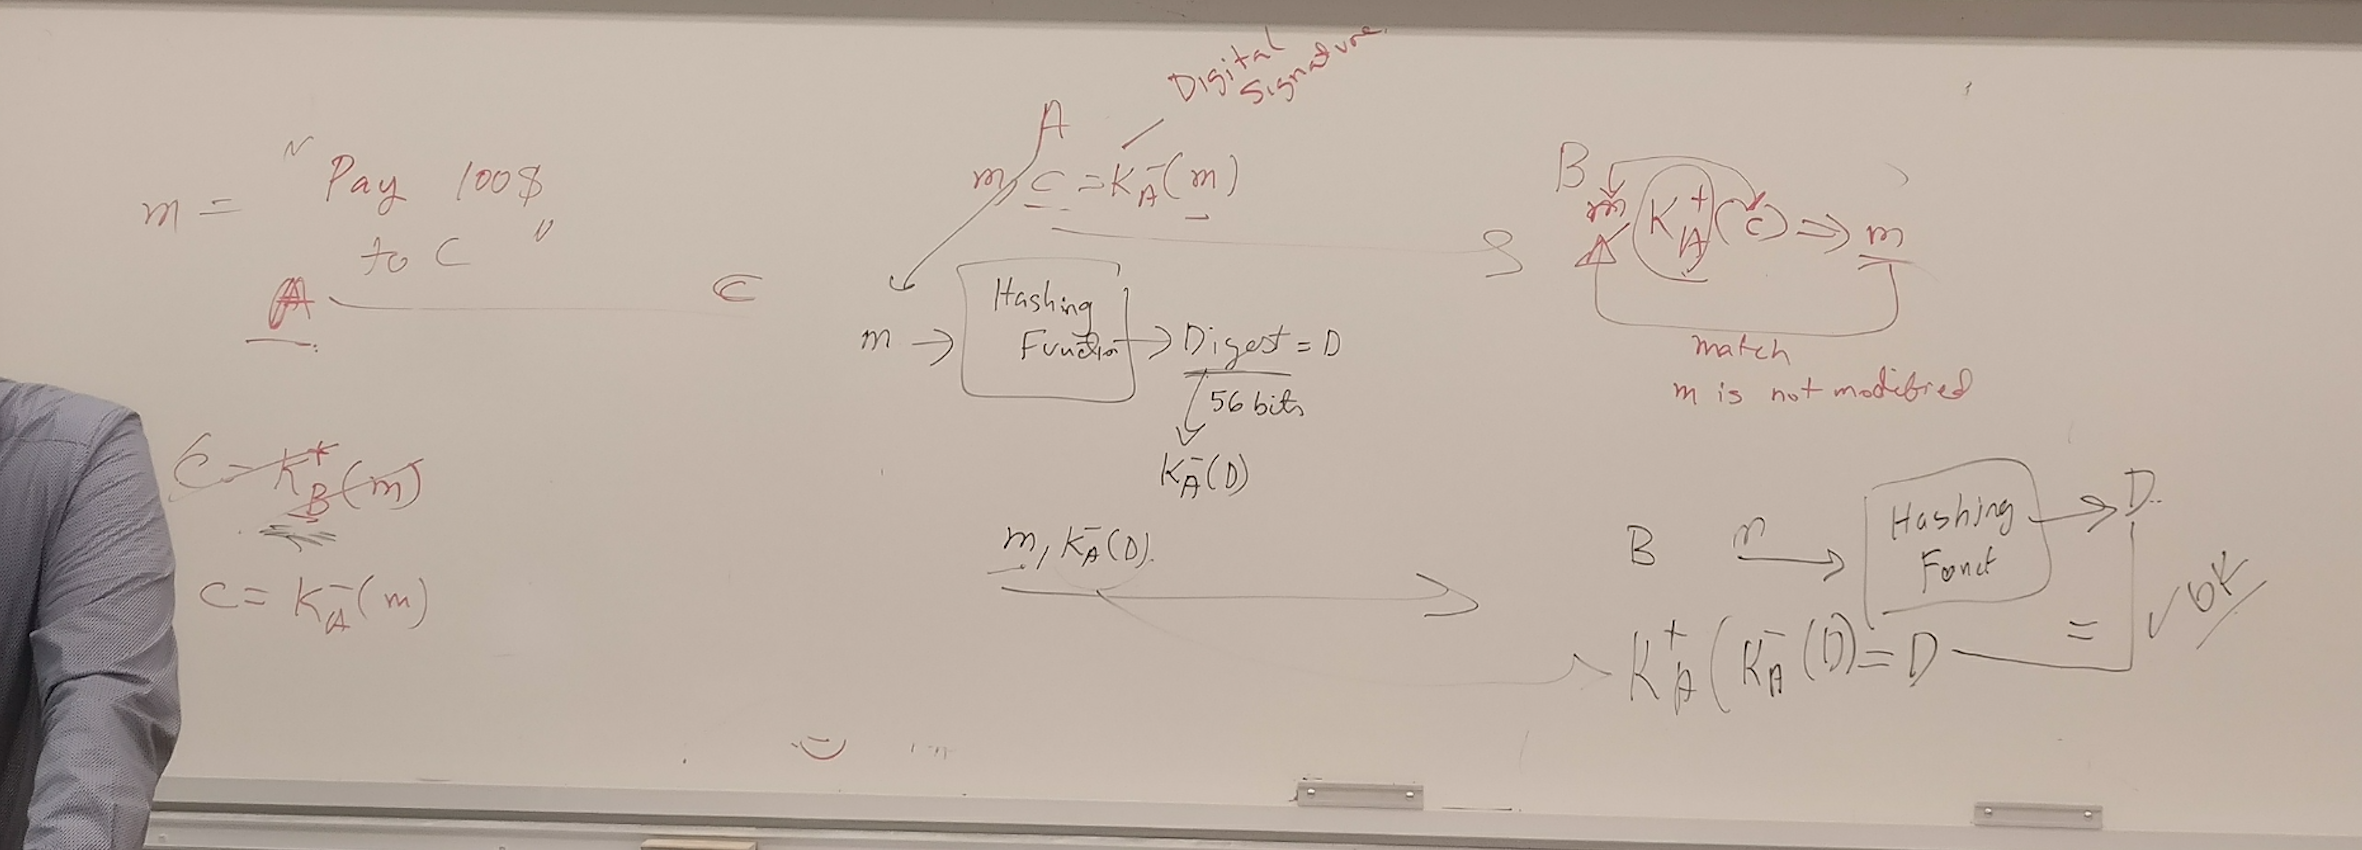 m = " Pay 100$
to C "
A C
C = K_B^+(m)
C = K_A^-(m)
Digital
Signature
A
m, C = K_A^-(m)
m → Hashing
Function → Digest = D
56 bits
K_A^-(D)
m, K_A^-(D).
B
m K_A^+(C) ⇒ m
match
m is not modified
B m → Hashing
Funct → D
K_A^+(K_A^-(D) = D = ✓ OK